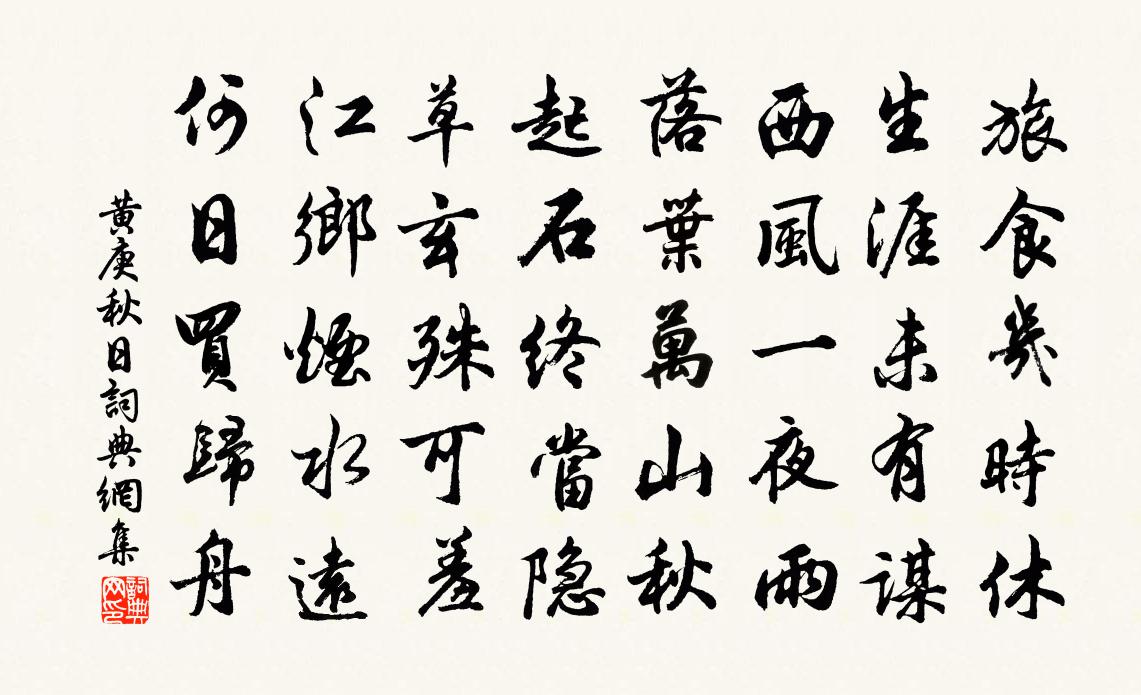 旅食幾時休
生涯未有謀
西風一夜雨
落葉萬山秋
起石终當隐
草玄殊可羞
江鄉煙水遠
何日買歸舟
黄庚秋日詞典網集
詞典網印